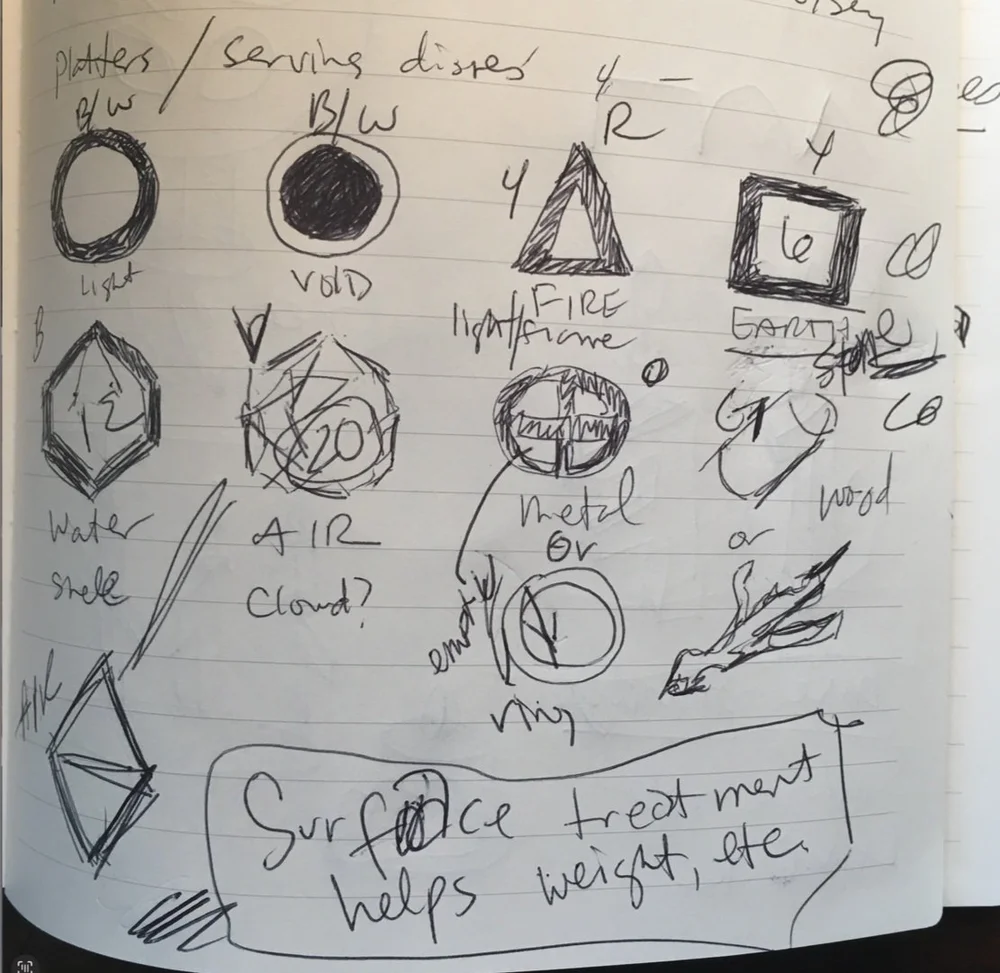 platters / serving dishes
4 -
B/W
B/W
R
4
4
6
Light
VOID
FIRE
light/flame
EARTH
stone
B
12
20
Water
AIR
metal
wood
or
or
Cloud?
ring
AIR
Surface treatment
helps weight, etc.